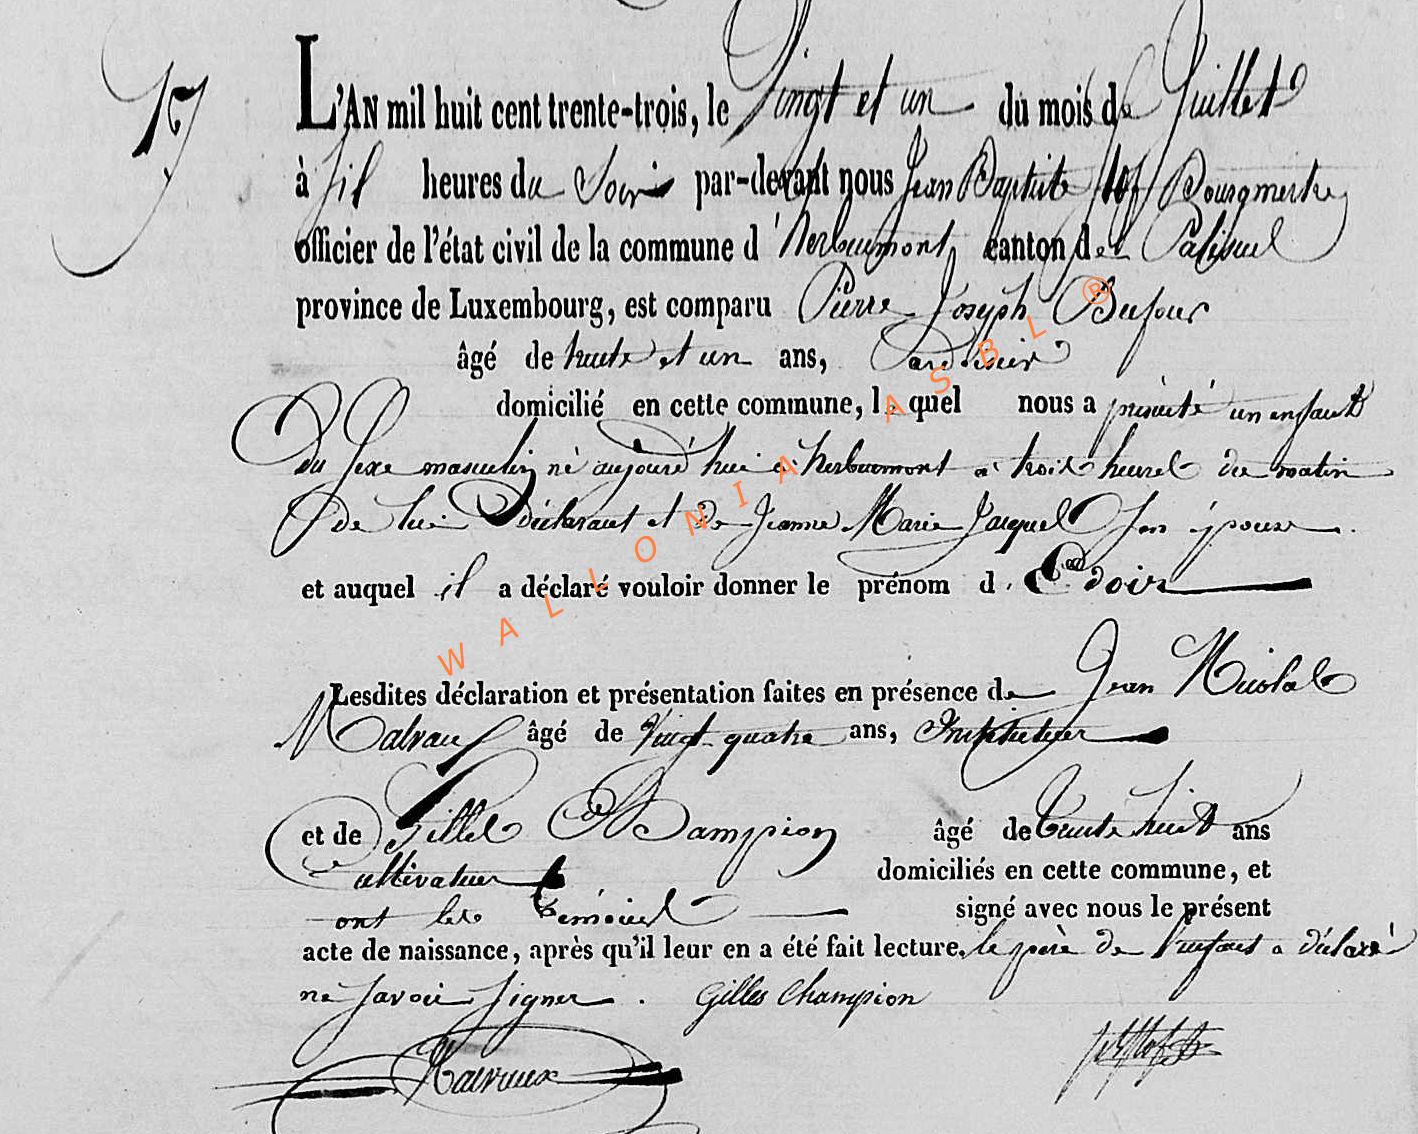 17
L'AN mil huit cent trente-trois, le Vingt et un du mois de Juillet
à six heures du Soir par-devant nous Jean Baptiste Bourgmestre
officier de l'état civil de la commune d'herbeumont canton de Paliseul
province de Luxembourg, est comparu Pierre Joseph Dufour
âgé de trente et un ans, ardoisier
domicilié en cette commune, lequel nous a présenté un enfant
du sexe masculin né aujourd'hui à herbeumont à trois heures du matin
de lui déclarant et de Jeanne Marie Jacques son épouse.
et auquel il a déclaré vouloir donner le prénom d. Edoir
Lesdites déclaration et présentation faites en présence de Jean Nicolas
Malvaux âgé de Vingt quatre ans, Instituteur
et de Gilles Champion âgé de trente huit ans
cultivateur domiciliés en cette commune, et
ont les témoins signé avec nous le présent
acte de naissance, après qu'il leur en a été fait lecture. le père de l'enfant a déclaré
ne savoir signer. Gilles Champion
Malvaux
WALLONIA ASBL ®